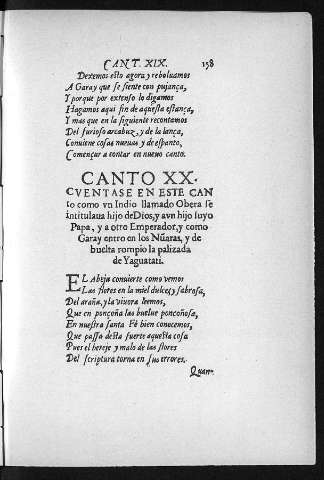 CANT. XIX. 158
Dexemos esto agora y reboluamos
A Garay que se siente con pujança,
Y porque por extenso lo digamos
Hagamos aqui fin de aquesta estança,
Y mas que en la siguiente recontamos
Del furioso arcabuz, y de la lança,
Conuiene cosas nueuas y de espanto,
Començar a contar en nueuo canto.
CANTO XX.
CVENTASE EN ESTE CAN
to como vn Indio llamado Obera se
intitulaua hijo de Dios, y a vn hijo suyo
Papa, y a otro Emperador, y como
Garay entro en los Nũaras, y de
buelta rompio la palizada
de Yaguatati.
EL Abeja conuierte como vemos
Las flores en la miel dulces y sabrosa,
Del araña, y la viuora leemos,
Que en ponçoña las buelue ponçoñosa,
En nuestra santa Fè bien conocemos,
Que passa desta suerte aquesta cosa
Pues el hereje y malo de las flores
De scriptura torna en sus errores.
Quan-